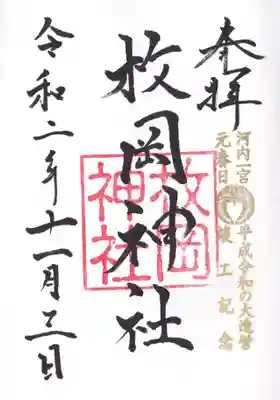 奉拝
河内一宮
元春日
平成令和の大造営
竣工記念
枚岡神社
枚岡
神社
令和二年十一月三日